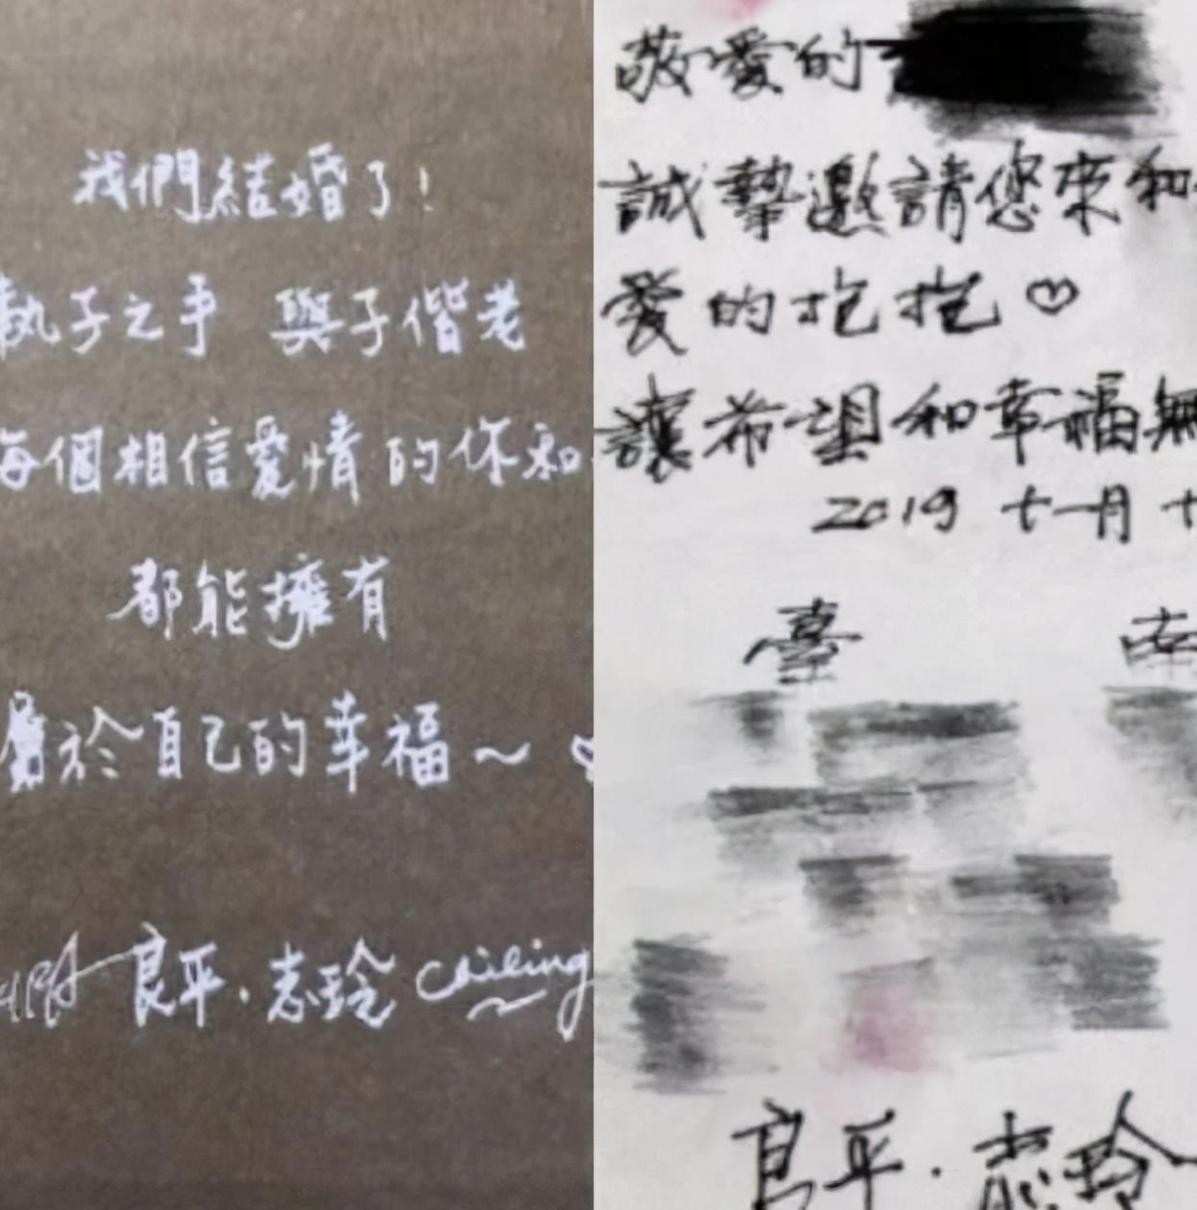 我們結婚了!
執子之手 與子偕老
每個相信愛情的你和
都能擁有
屬於自己的幸福~ ♡
良平·志玲 Chiling
敬愛的
誠摯邀請您來和
愛的抱抱♡
讓希望和幸福無
2019 十一月 十
臺 南
良平·志玲